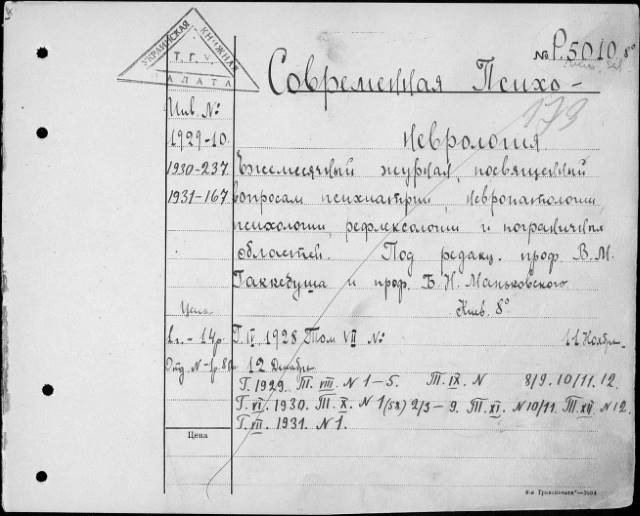 УКРАИНСКАЯ КНИЖНАЯ
Т. Г. У.
ПАЛАТА
№ Р.5010 8°
Современная Психо-
173
Инв. №
Неврология.
1929-10.
1930-237.
1931-167
Ежемесячный журнал, посвященный
вопросам психиатрии, невропатологии,
психологии, рефлексологии и пограничных
областей. Под редакц. проф. В. М.
Гаккебуша и проф. Б. Н. Маньковского
Киев. 8°
Цена
в г. - 14р.
Г. IV 1928 Том VII №: 11 Ноябрь
Отд. №-1р. 80к
12 Декабрь
Г. 1929. Т. VIII. № 1-5. Т. IX. № 8/9. 10/11. 12.
Г. VI. 1930. Т. X. № 1(52) 2/3-9. Т. XI. № 10/11. Т. XII № 12.
Г. VII. 1931. № 1.
Цена